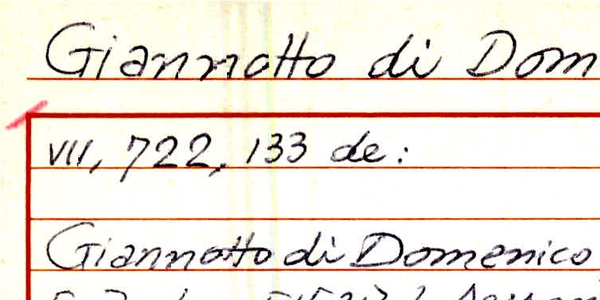 Giannotto di Dom
VII, 722, 133 de:
Giannotto di Domenico